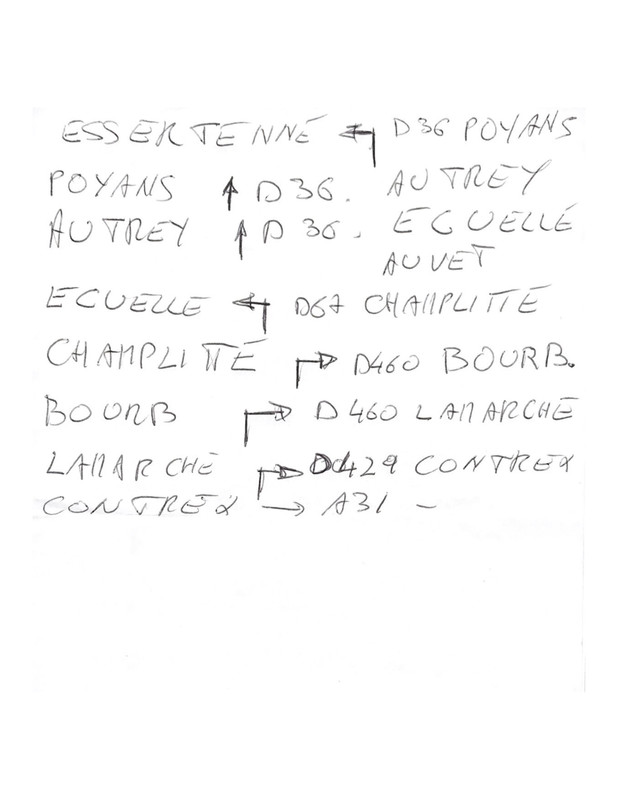 ESSERTENNE ↰ D36 POYANS
POYANS ↑ D36. AUTREY
AUTREY ↑ D 36. ECUELLE
AUVET
ECUELLE ↰ D67 CHAMPLITTE
CHAMPLITTE ↱ D460 BOURB.
BOURB ↱ D460 LAMARCHE
LAMARCHE ↱ D429 CONTREX
CONTREX → A31 -